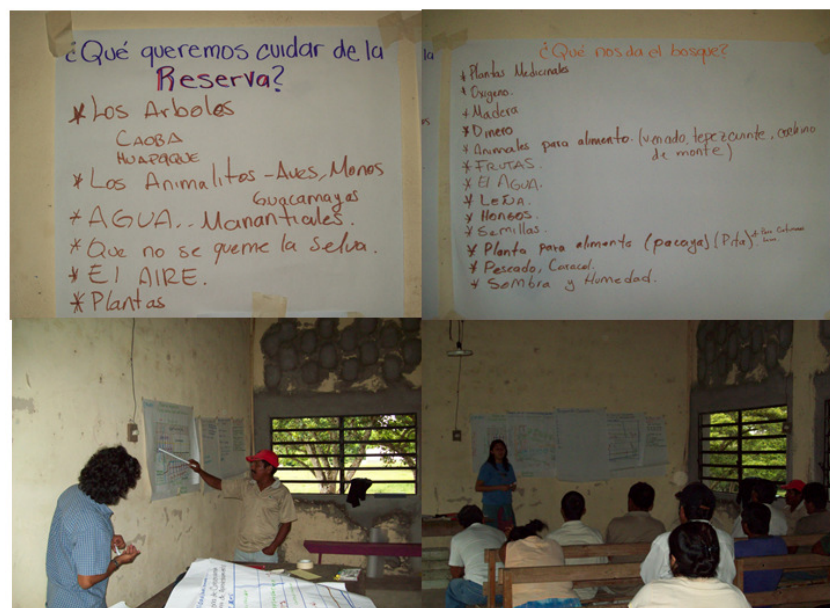 ¿Qué queremos cuidar de la
Reserva?
* Los Arboles
CAOBA
HUAPAQUE
* Los Animalitos - Aves, Monos
Guacamayas
* AGUA.. Manantiales.
* Que no se queme la selva.
* El AIRE.
* Plantas
¿Qué nos da el bosque?
* Plantas Medicinales
* Oxigeno.
* Madera
* Dinero
* Animales para alimento. (venado, tepezcuinte, cochino
de monte)
* FRUTAS.
* El AGUA.
* LEÑA.
* Hongos.
* Semillas.
* Planta para alimento (pacaya) (Pita)
* Pescado, Caracol.
* Sombra y Humedad.